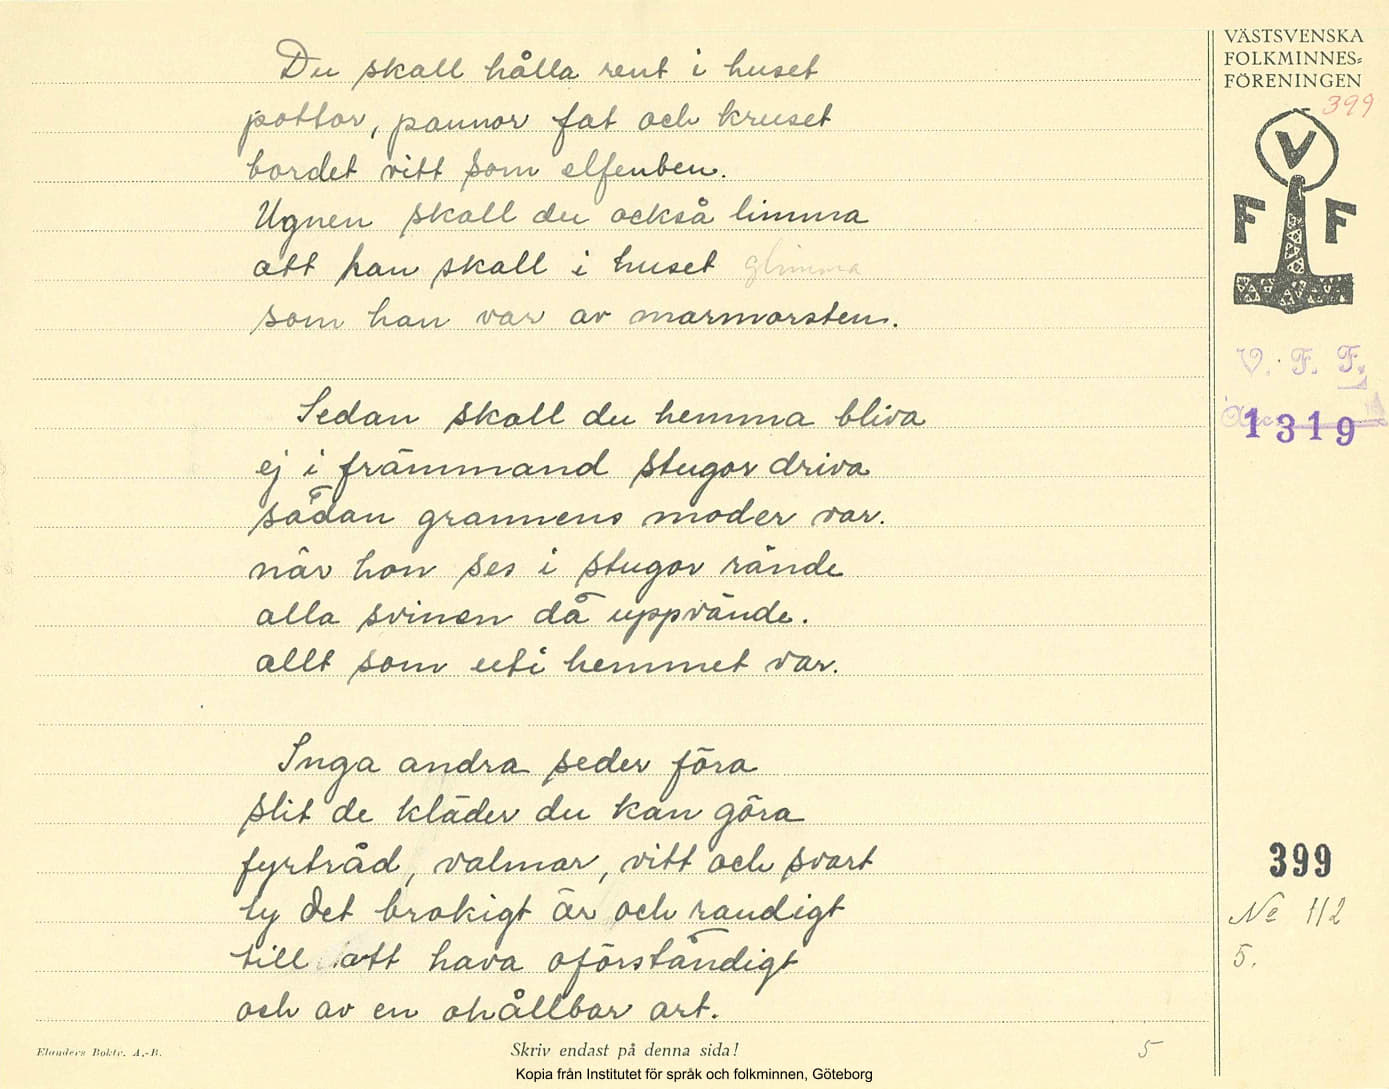 Du skall hålla rent i huset
pottor, pannor fat och kruset
bordet vitt som elfenben.
Ugnen skall du också limma
att han skall i huset glimma
som han var av marmorsten.
Sedan skall du hemma bliva
ej i främmand stugor driva
sådan grannens moder var.
när hon ses i stugor rände
alla svinen då uppvände.
allt som uti hemmet var.
Inga andra seder föra
slit de kläder du kan göra
fyrtråd, valmar, vitt och svart
ty det brokigt är och randigt
till att hava oförståndigt
och av en ohållbar art.
VÄSTSVENSKA
FOLKMINNES=
FÖRENINGEN
399
V
F F
V. F. F.
Acc.
1319
399
No 112
5.
Elanders Boktr. A.-B.
Skriv endast på denna sida!
5
Kopia från Institutet för språk och folkminnen, Göteborg